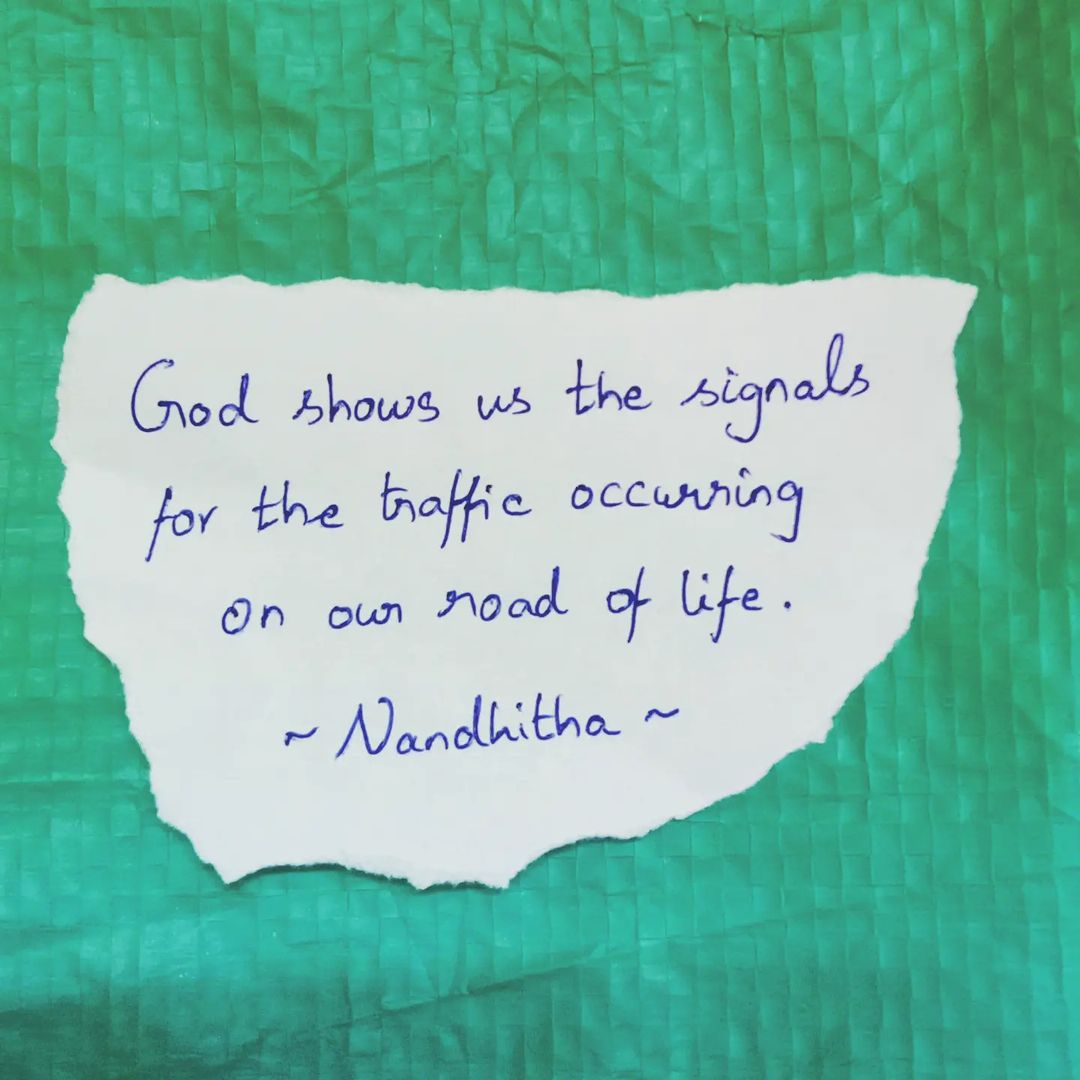 God shows us the signals
for the traffic occurring
on our road of life.
~ Nandhitha ~